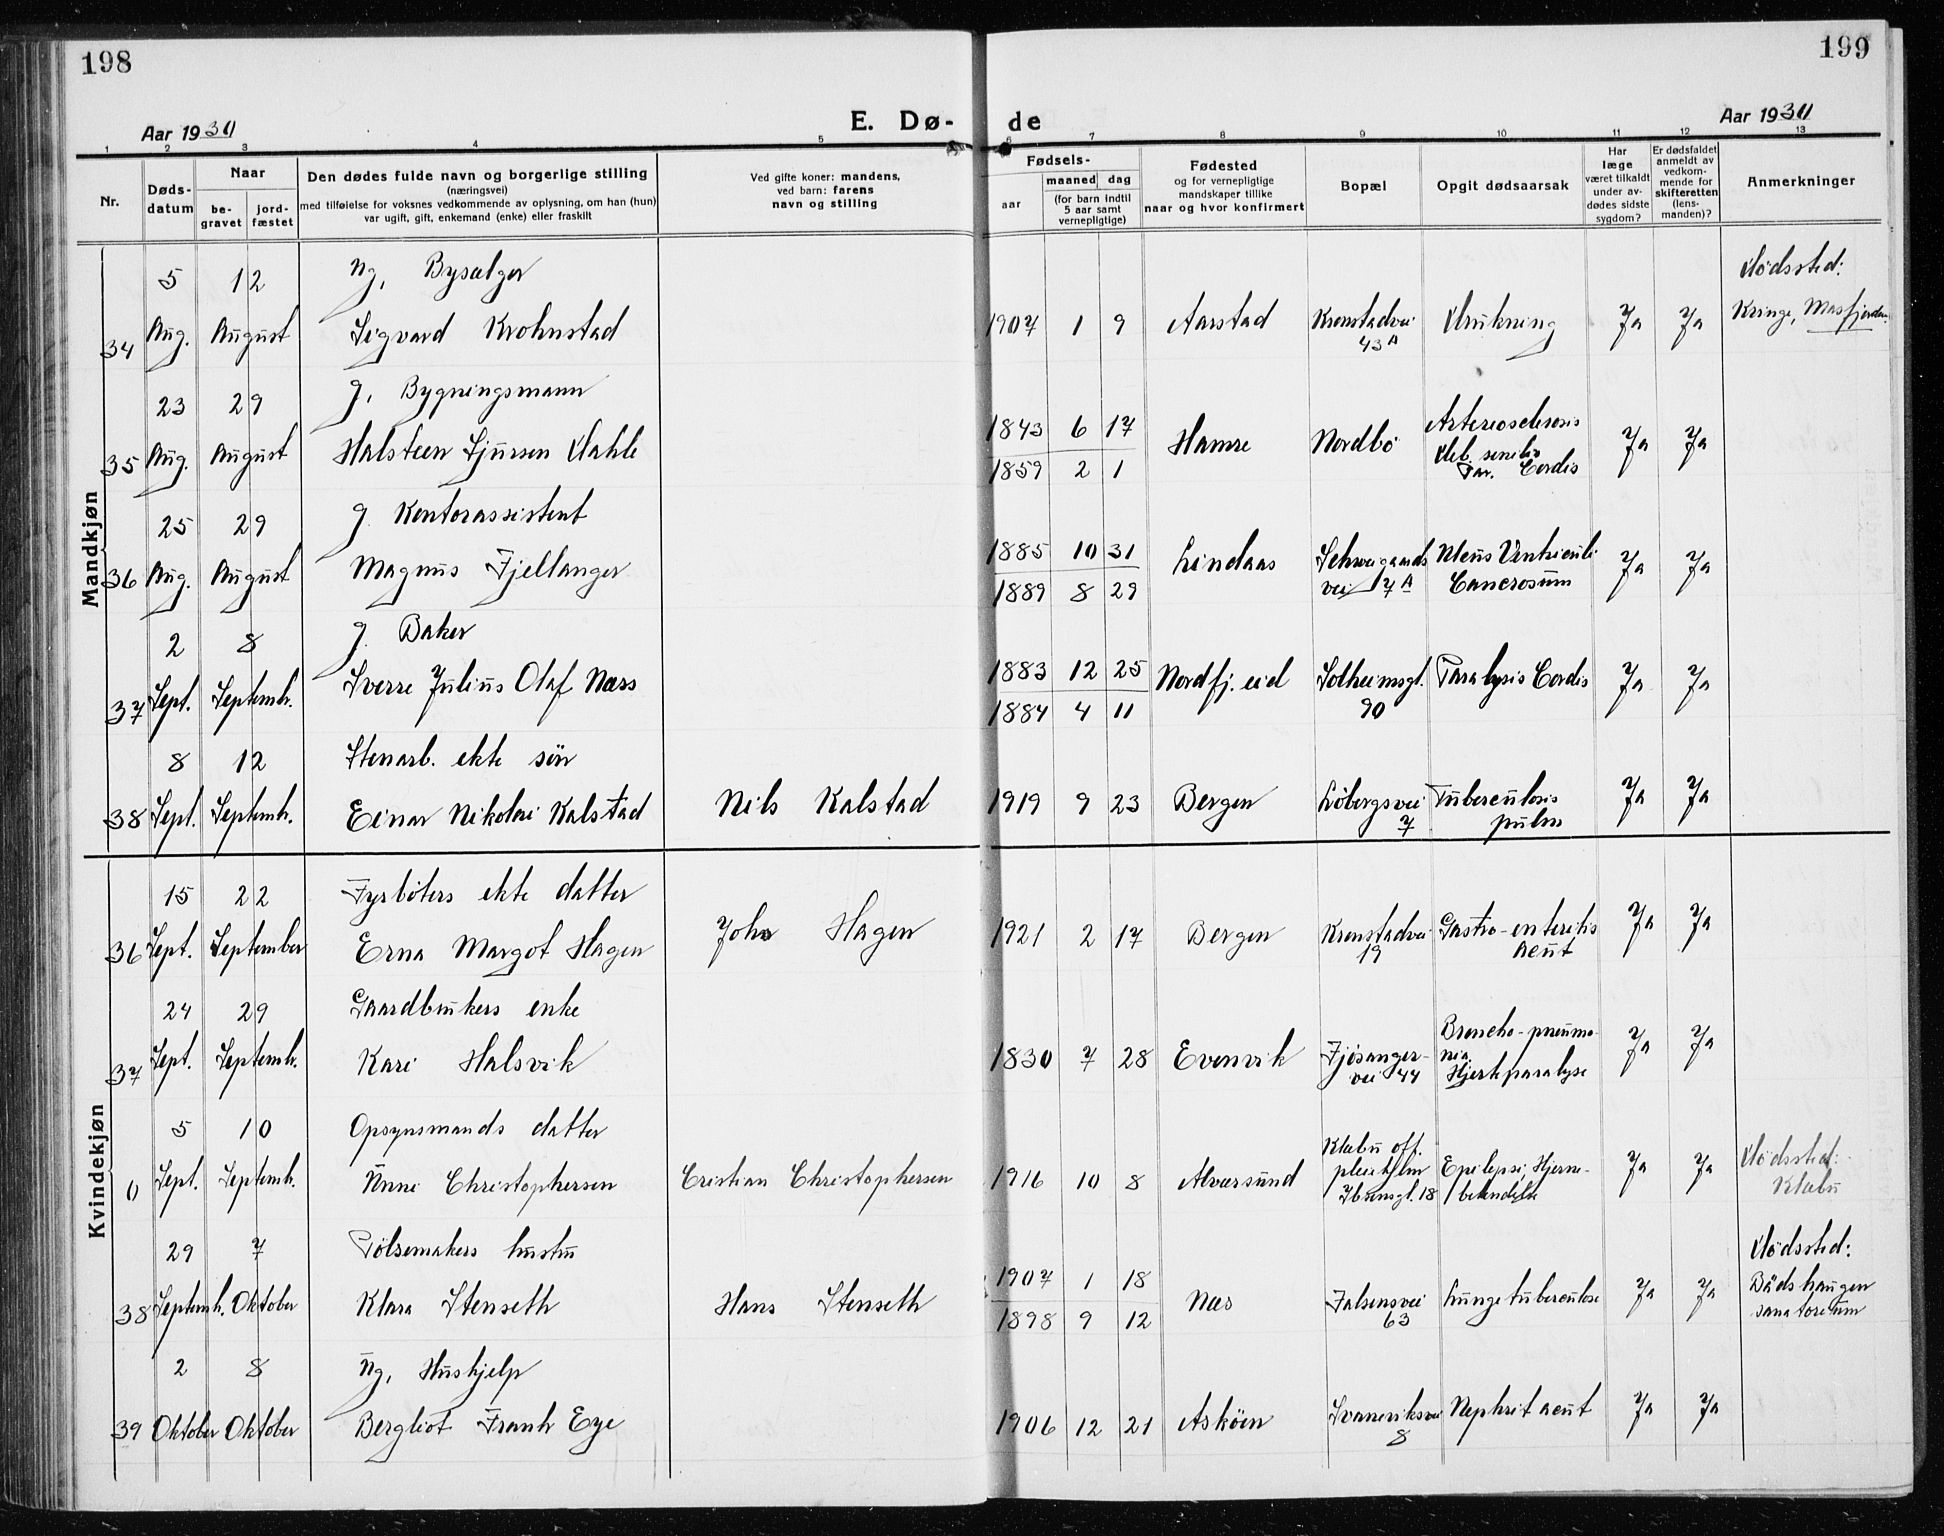 198
199
Aar 1930
E. Dø-
de
Aar 1930
1 2 3 4 5 6 7 8 9 10 11 12 13
Nr.
Døds-
datum
Naar
be-
gravet
jord-
fæstet
Den dødes fulde navn og borgerlige stilling
(næringsvei)
med tilføielse for voksnes vedkommende av oplysning, om han (hun)
var ugift, gift, enkemand (enke) eller fraskilt
Ved gifte koner: mandens,
ved barn: farens
navn og stilling
Fødsels-
aar
maaned dag
(for barn indtil
5 aar samt
vernepligtige)
Fødested
og for vernepligtige
mandskaper tillike
naar og hvor konfirmert
Bopæl
Opgit dødsaarsak
Har
læge
været tilkaldt
under av-
dødes sidste
sygdom?
Er dødsfaldet
anmeldt av
vedkom-
mende for
skifteretten
(lens-
manden)?
Anmerkninger
Mandkjøn
5 12 Ug, Bysælger Dødssted:
34 Aug. August Sigvard Krohnstad 1907 1 9 Aarstad Kronstadvei Drukning Ja Ja Kringe, Masfjorden.
43 A
23 29 g, Bygningsmann
1843 6 17 Arteriosclerosis
35 Aug. August Halsteen Sjursen Dahle Hamre Nordbø Deb. senilis Ja Ja
1859 2 1 Par. Cordis
25 29 g Kontorassistent
1885 10 31
36 Aug. August Magnus Fjellanger Lindaas Schweigaards Ulcus Ventriculi Ja Ja
1889 8 29 vei 7 A Cancrosum
2 8 g. Baker
1883 12 25
37 Sept. Septemb. Sverre Julius Olaf Næss Nordfj. eid Solheimsgt. Paralysis Cordis Ja Ja
1884 4 11 90
8 12 Stenarb. ekte søn
38 Sept. Septemb. Einar Nikolai Kalstad Nils Kalstad 1919 9 23 Bergen Løbergsvei Tuberculosis Ja Ja
7 pulm
Kvindekjøn
15 22 Fyrbøters ekte datter
36 Sept. September Erna Margot Hagen John Hagen 1921 2 17 Bergen Kronstadvei Gastro-enteritis Ja Ja
19 acut
24 29 Gaardbrukers enke
Broncho-pneumo-
37 Sept. Septemb. Kari Halsvik 1830 7 28 Evenvik Fjøsanger- nia Ja Ja
vei 44 Hjerteparalyse
5 10 Opsynsmands datter
Klæbu off.
0 Sept. Septemb. Unni Christophersen Cristian Christophersen 1916 10 8 Alversund pleiehjem Epilepsi, Hjerne- Ja Ja Dødssted:
Ibsensgt. 18 betendelse Klæbu
29 7 Pølsemakers hustru Dødssted:
1907 1 18
38 Septemb. Oktober Klara Stenseth Hans Stenseth Næs Falsensvei Lungetuberculose Ja Ja Bådshaugen
1898 9 12 63 sanatorium
2 8 Ug, Hushjelp
39 Oktober Oktober Bergliot Franh Eye 1906 12 21 Askøen Svaneviksvei Nephrit acut Ja Ja
8